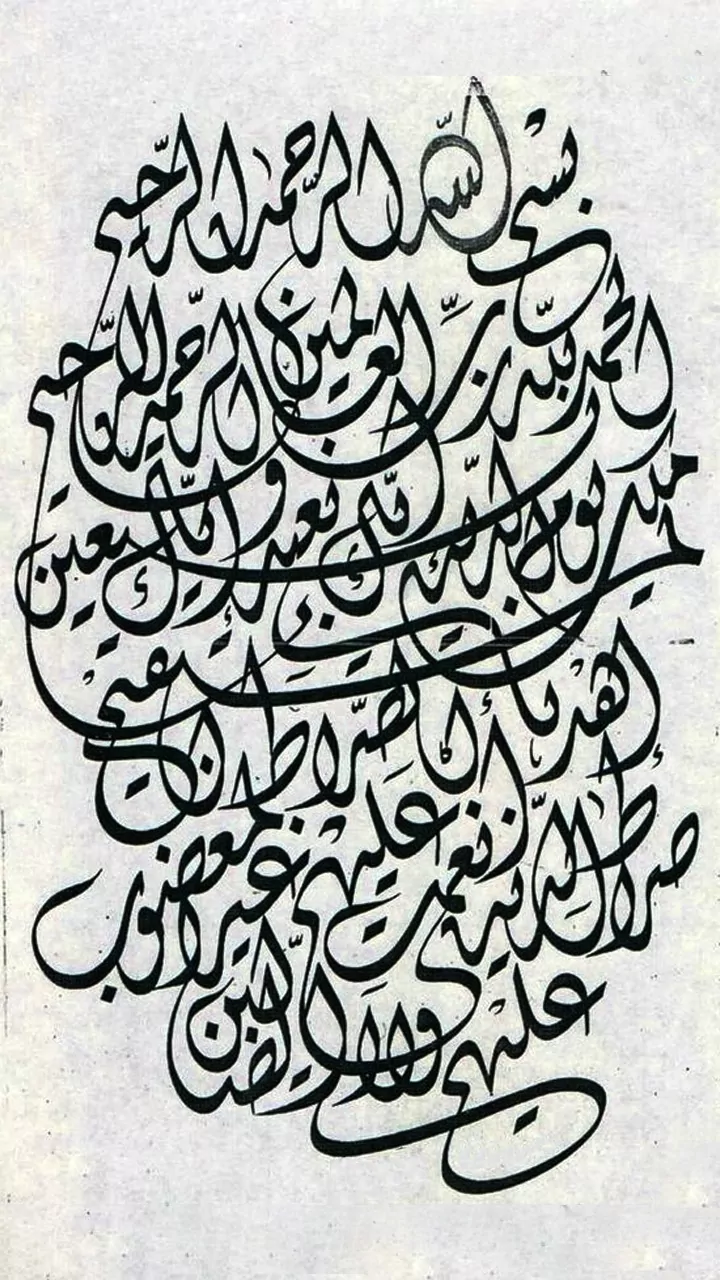 بسم الله الرحمن الرحيم
الحمد لله رب العالمين الرحمن الرحيم
ملك يوم الدين إياك نعبد وإياك نستعين
اهدنا الصراط المستقيم
صراط الذين أنعمت عليهم غير المغضوب
عليهم ولا الضالين